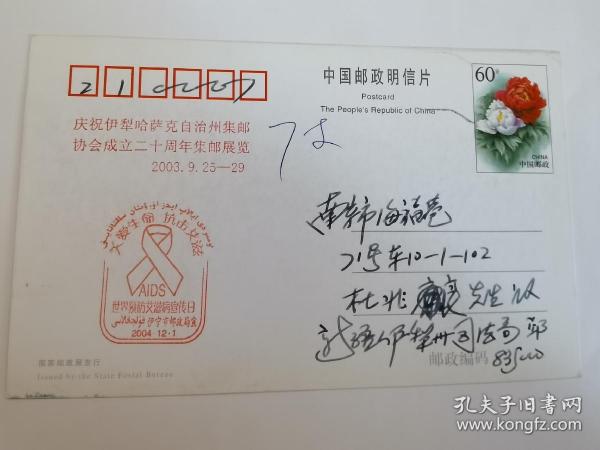 中国邮政明信片
Postcard
The People's Republic of China
60分
CHINA
中国邮政
庆祝伊犁哈萨克自治州集邮
协会成立二十周年集邮展览
2003.9.25—29
关爱生命 抗击艾滋
AIDS
世界预防艾滋病宣传日
伊宁市邮政局
2004·12·1
南京市海福巷
71号东10-1-102
杜兆
先生收
邮政编码
国家邮政局发行
Issued by the State Postal Bureau
孔夫子旧书网
www.kongfz.com